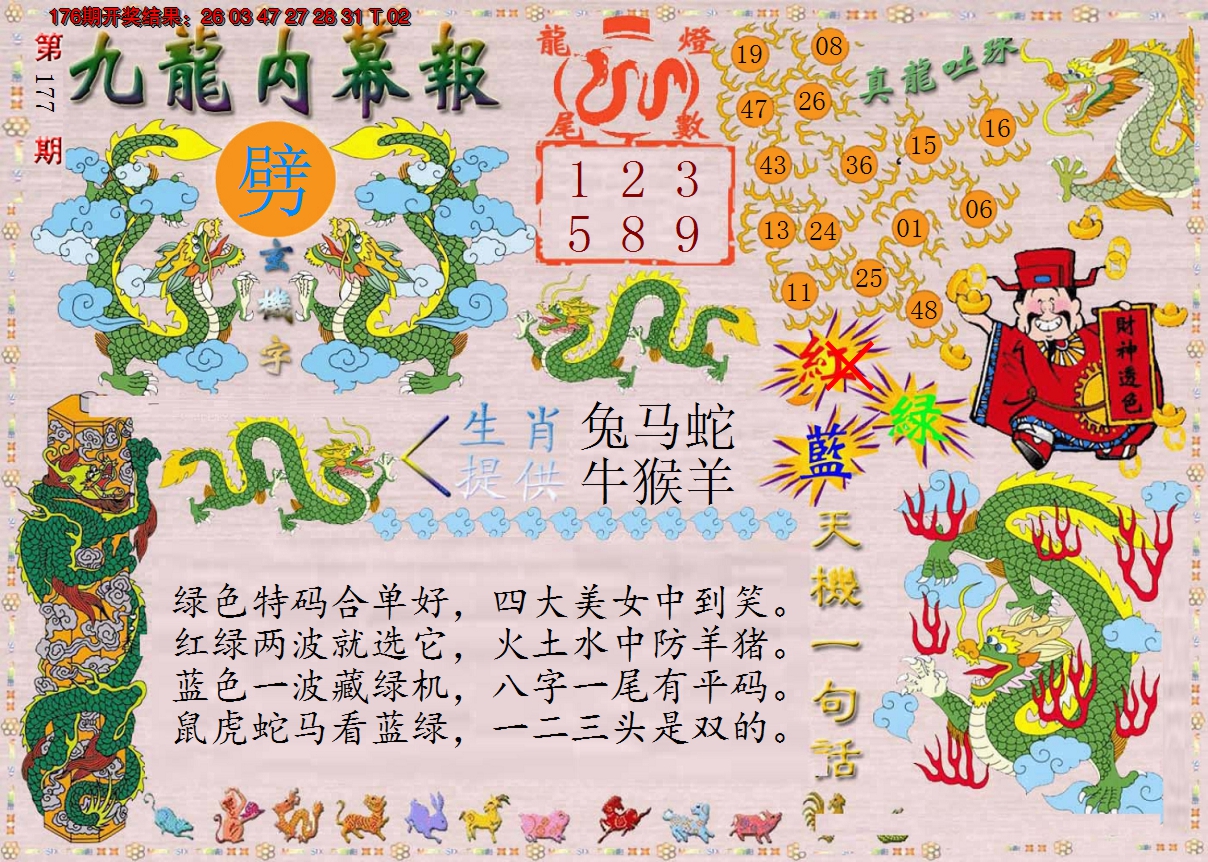 176期开奖结果：26 03 47 27 28 31 T 02
第177期
九龍内幕報
劈
玄機字
龍燈
尾數
1 2 3
5 8 9
真龍吐珠
19 08
47 26
15 16
43 36
06
13 24 01
25
11 48
財神透色
紅
绿
藍
生肖 兔马蛇
提供 牛猴羊
天機一句话
绿色特码合单好，四大美女中到笑。
红绿两波就选它，火土水中防羊猪。
蓝色一波藏绿机，八字一尾有平码。
鼠虎蛇马看蓝绿，一二三头是双的。